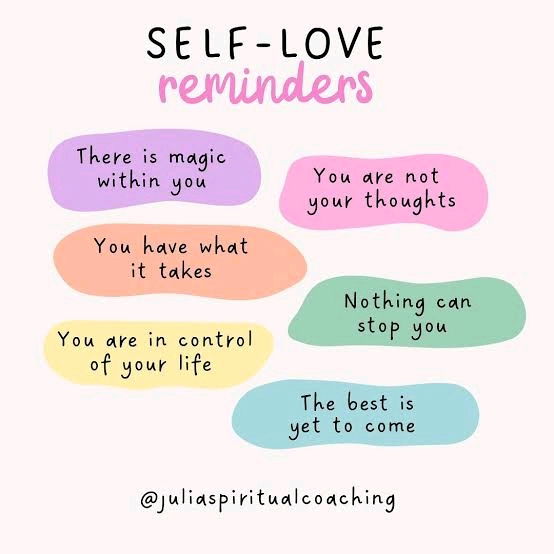 SELF-LOVE
reminders
There is magic
within you
You are not
your thoughts
You have what
it takes
Nothing can
stop you
You are in control
of your life
The best is
yet to come
@juliaspiritualcoaching